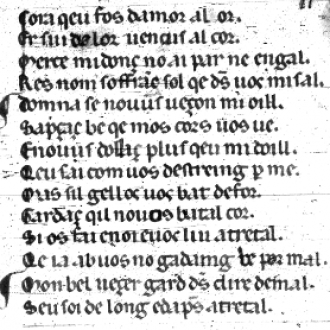 Sora qeu fos damor al or.
Er sui de lor uencus al cor.
Perce midonç no ai par ne engal.
Res nom soffraē sol qe dš uoc mi sal.
Domna se nouus ueçon mi oill.
Sapçaç be qe mos cors uos ue.
Enouus dollaç plus qeu mi doill.
Qeu sai com uos destreing p me.
Mas sil gelloc uos bat defor.
Gardaç qil nouos batal cor.
Si os fai enoi euoc lui atretal.
Qe ia ab uos no gadaing be por mal.
Mon bel ueçer gard dš dire de mal.
Seu soi de long edaps atretal.